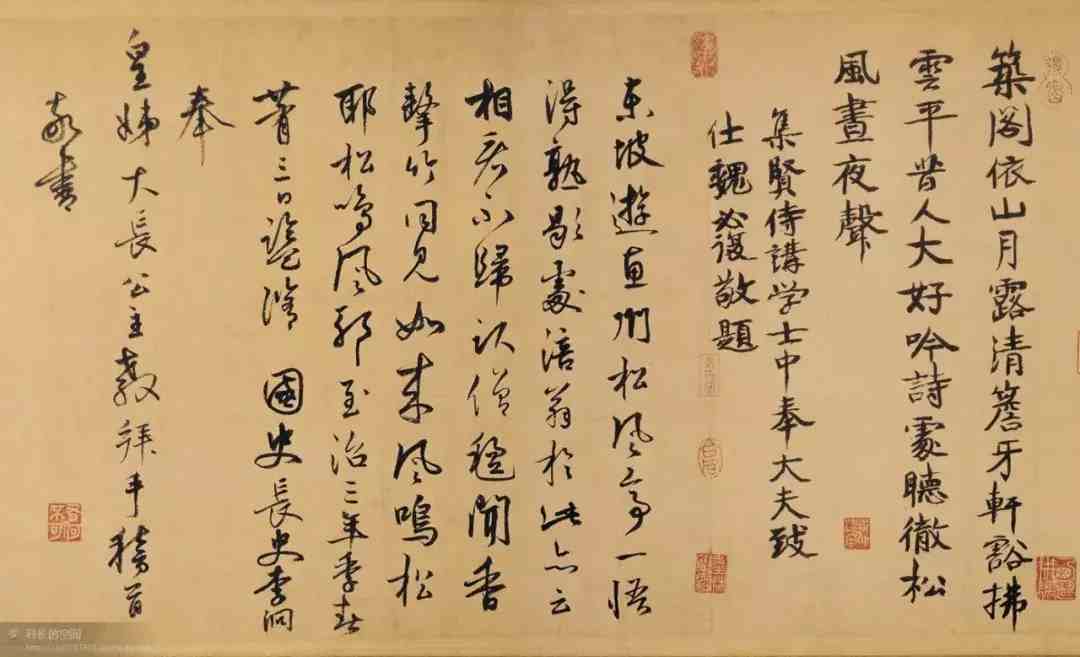 築閣依山月露清簷牙軒豁拂
雲平昔人大好吟詩處聽徹松
風晝夜聲
集賢侍講学士中奉大夫致
仕魏必復敬題
東坡遊惠州松風亭一悟
得熟歇處涪翁於此亦云
相君不歸僧聞香
擊竹同見如來風鳴松
耶松鳴風耶至治三年季春
三日監脩國史長史李泂
奉
皇姊大長公主教拜手稽首
敬書